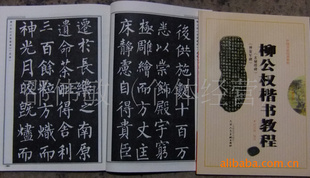 柳公权楷书教程
後供施數十百万
悉以崇飾殿宇窮
極雕繪而方丈匚
床靜慮自得貴臣
遷於長樂之南原
遺命荼毗得舍利
三百餘粒方熾而
神光月皎既燼而